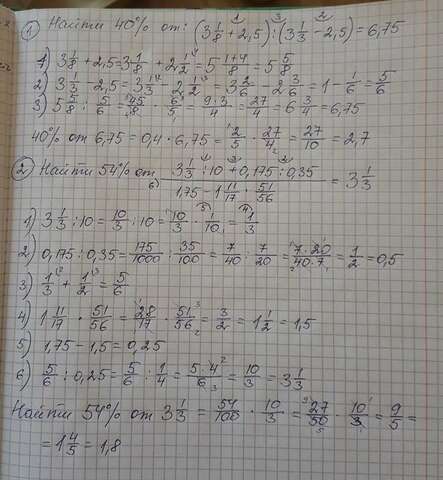 ① Найти 40% от: (3 1/8 + 2,5) : (3 1/3 - 2,5) = 6,75
1) 3 1/8 + 2,5 = 3 1/8 + 2 1/2 = 5 (1+4)/8 = 5 5/8
2) 3 1/3 - 2,5 = 3 1/3 - 2 1/2 = 3 2/6 - 2 3/6 = 1 - 1/6 = 5/6
3) 5 5/8 : 5/6 = 45/8 · 6/5 = (9·3)/4 = 27/4 = 6 3/4 = 6,75
40% от 6,75 = 0,4 · 6,75 = 2/5 · 27/4 = 27/10 = 2,7
② Найти 54% от (3 1/3 : 10 + 0,175 : 0,35)/(1,75 - 1 11/17 · 51/56) = 3 1/3
1) 3 1/3 : 10 = 10/3 : 10 = 10/3 · 1/10 = 1/3
2) 0,175 : 0,35 = 175/1000 : 35/100 = 7/40 : 7/20 = (7·20)/(40·7) = 1/2 = 0,5
3) 1/3 + 1/2 = 5/6
4) 1 11/17 · 51/56 = 28/17 · 51/56 = 3/2 = 1 1/2 = 1,5
5) 1,75 - 1,5 = 0,25
6) 5/6 : 0,25 = 5/6 : 1/4 = (5·4)/6 = 10/3 = 3 1/3
Найти 54% от 3 1/3 = 54/100 · 10/3 = 27/50 · 10/3 = 9/5 =
= 1 4/5 = 1,8